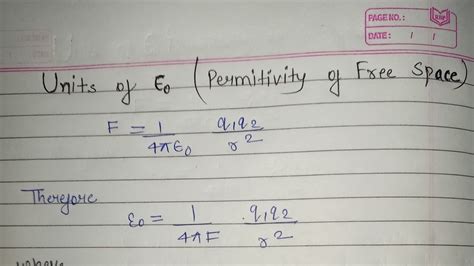 PAGE NO.:
DATE: / /
Units of ε₀ (Permitivity of Free Space)
F = 1/4πε₀ q₁q₂/r²
Therefore
ε₀ = 1/4πF . q₁q₂/r²
where